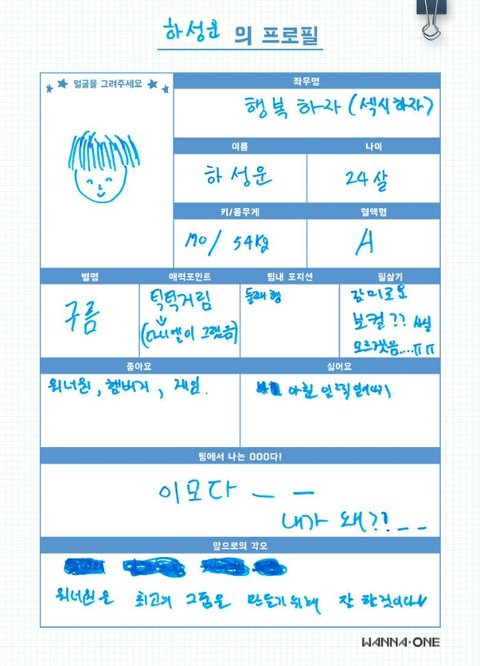 하성운 의 프로필
얼굴을 그려주세요
좌우명
행복 하자 (섹시하자)
이름
하성운
나이
24살
키/몸무게
170/ 54kg
혈액형
A
별명
구름
매력포인트
틱틱거림
(다니엘이 그랬음)
팀내 포지션
둘째형
필살기
감미로운
보컬?? 사실
모르겠음....ㅠㅠ
좋아요
워너원, 햄버거, 게임.
싫어요
아침 일찍 일어나기
팀에서 나는 OOO다!
이모다 ㅡ ㅡ
내가 왜?? _ _
앞으로의 각오
워너원은 최고의 그룹을 만들기위해 잘 할것이다
WANNA·ONE